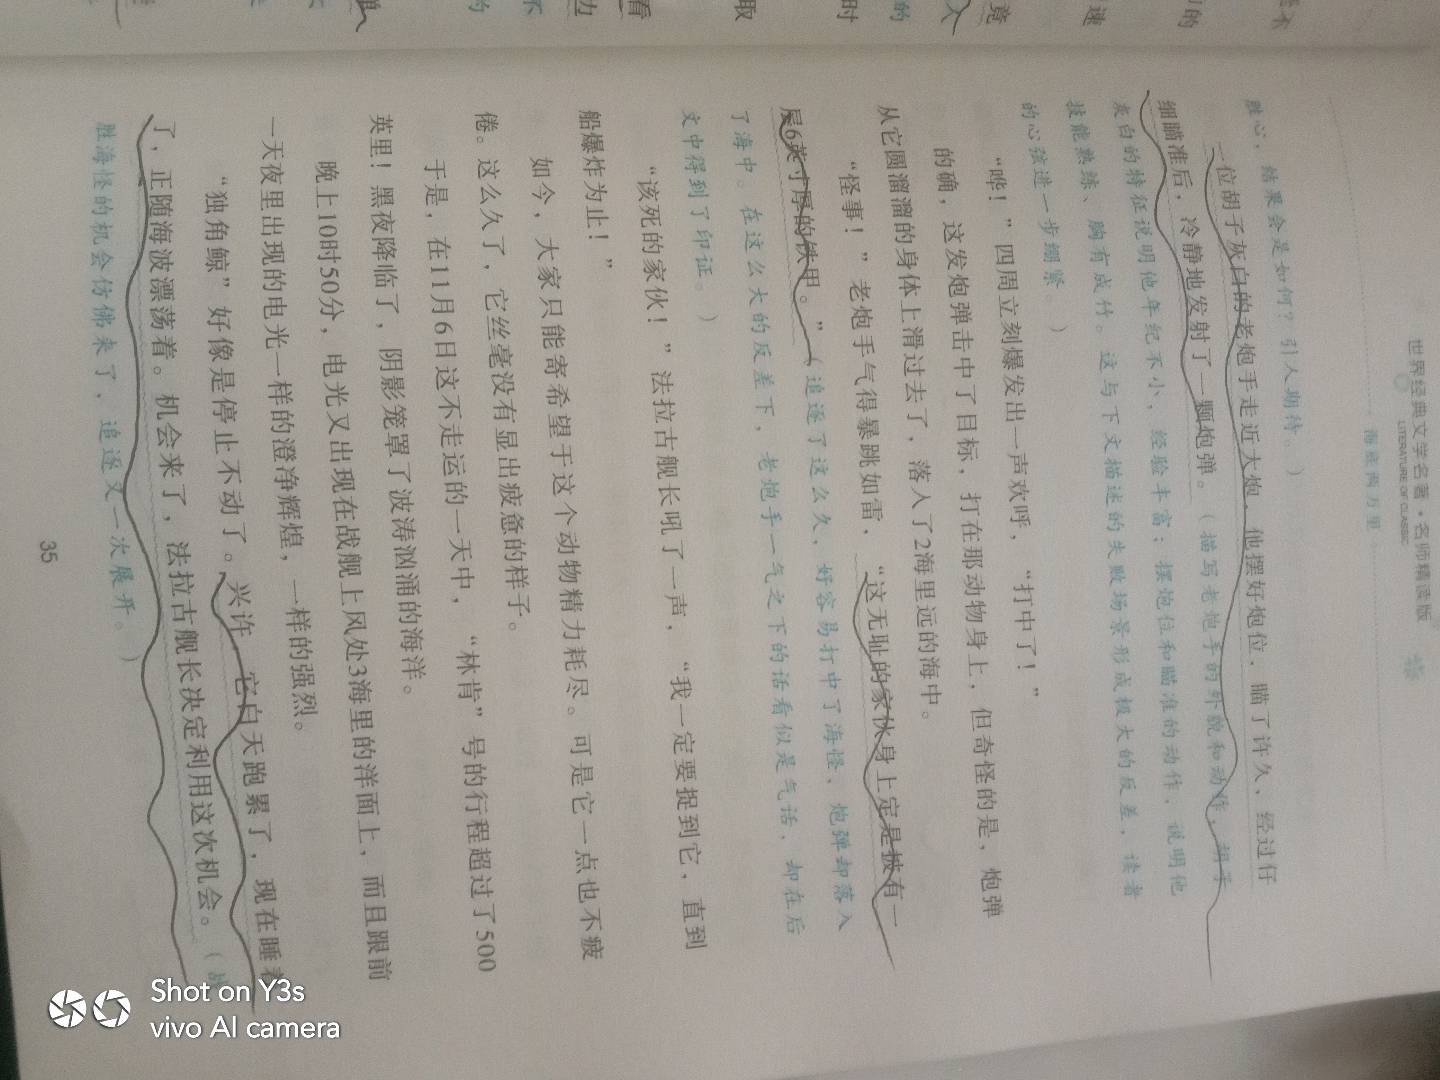 世界经典文学名著·名师精读版
LITERATURE OF CLASSIC
海底两万里
胜心，结果会是如何？引人期待。）
一位胡子灰白的老炮手走近大炮，他摆好炮位，瞄了许久，经过仔
细瞄准后，冷静地发射了一颗炮弹。（描写老炮手的外貌和动作，胡子
灰白的特征说明他年纪不小，经验丰富；摆炮位和瞄准的动作，说明他
技能熟练、胸有成竹。这与下文描述的失败场景形成极大的反差，读者
的心弦进一步绷紧。）
“哗！”四周立刻爆发出一声欢呼，“打中了！”
的确，这发炮弹击中了目标，打在那动物身上，但奇怪的是，炮弹
从它圆溜溜的身体上滑过去了，落入了2海里远的海中。
“怪事！”老炮手气得暴跳如雷，“这无耻的家伙身上定是披有一
层6英寸厚的铁甲。”（追逐了这么久，好容易打中了海怪，炮弹却落入
了海中。在这么大的反差下，老炮手一气之下的话看似是气话，却在后
文中得到了印证。）
“该死的家伙！”法拉古舰长吼了一声，“我一定要捉到它，直到
船爆炸为止！”
如今，大家只能寄希望于这个动物精力耗尽。可是它一点也不疲
倦。这么久了，它丝毫没有显出疲惫的样子。
于是，在11月6日这不走运的一天中，“林肯”号的行程超过了500
英里！黑夜降临了，阴影笼罩了波涛汹涌的海洋。
晚上10时50分，电光又出现在战舰上风处3海里的洋面上，而且跟前
一天夜里出现的电光一样的澄净辉煌，一样的强烈。
“独角鲸”好像是停止不动了。兴许，它白天跑累了，现在睡着
了，正随海波漂荡着。机会来了，法拉古舰长决定利用这次机会。（战
胜海怪的机会仿佛来了，追逐又一次展开。）
35
Shot on Y3s
vivo AI camera